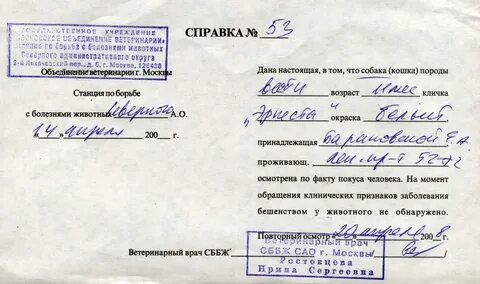 ГОСУДАРСТВЕННОЕ УЧРЕЖДЕНИЕ
МОСКОВСКОЕ ОБЪЕДИНЕНИЕ ВЕТЕРИНАРИИ
станция по борьбе с болезнями животных
Северного административного округа
г. Москва, 125438
Объединение ветеринарии г. Москвы
Станция по борьбе
с болезнями животных Северного А.О.
"14" апреля 200 г.
СПРАВКА № 53
Дана настоящая, в том, что собака (кошка) породы
Вести возраст 1 мес кличка
"Эрнеста" окраска белый
принадлежащая Барановской Е.А.
проживающ. Лен. пр-т
осмотрена по факту покуса человека. На момент
обращения клинических признаков заболевания
бешенством у животного не обнаружено.
Повторный осмотр 20 апреля 2008
Ветеринарный врач СББЖ
Ветеринарный врач
СББЖ САО г. Москвы
Ростовцева
Ирина Сергеевна